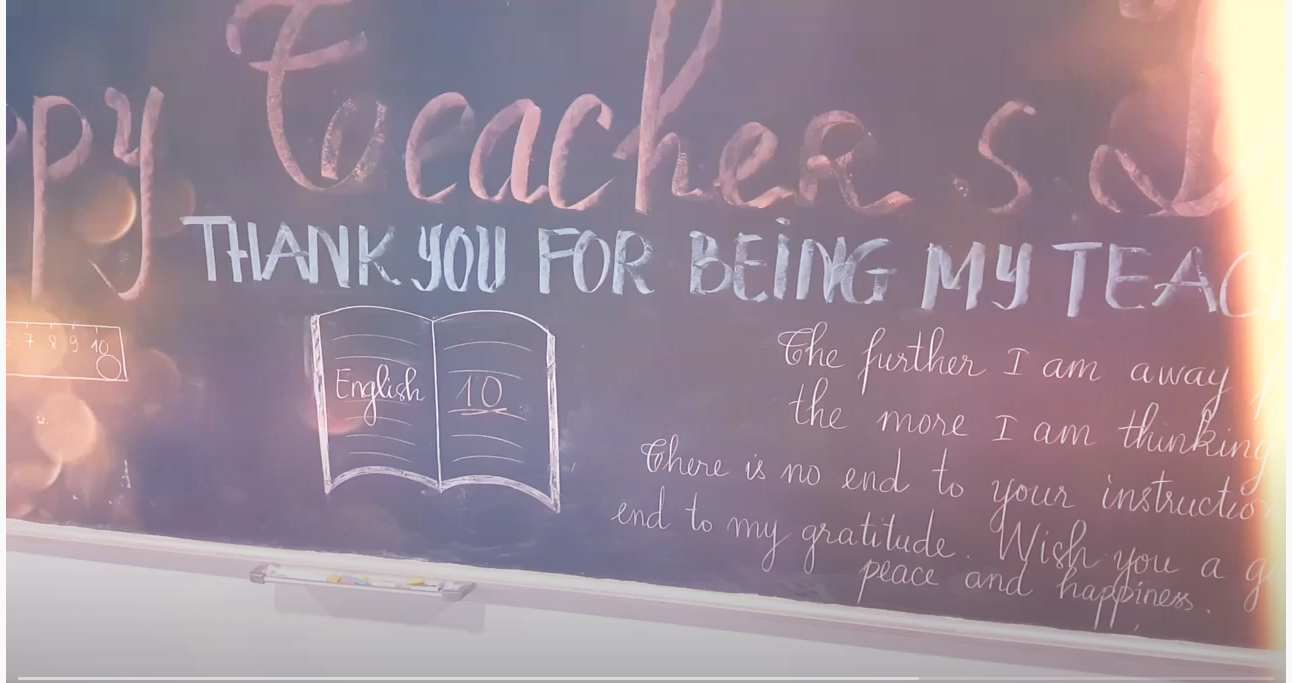 ppy Teacher's D
THANK YOU FOR BEING MY TEAC
7 8 9 10
English 10
The further I am away
the more I am thinking
There is no end to your instructio
end to my gratitude. Wish you a g
peace and happiness.